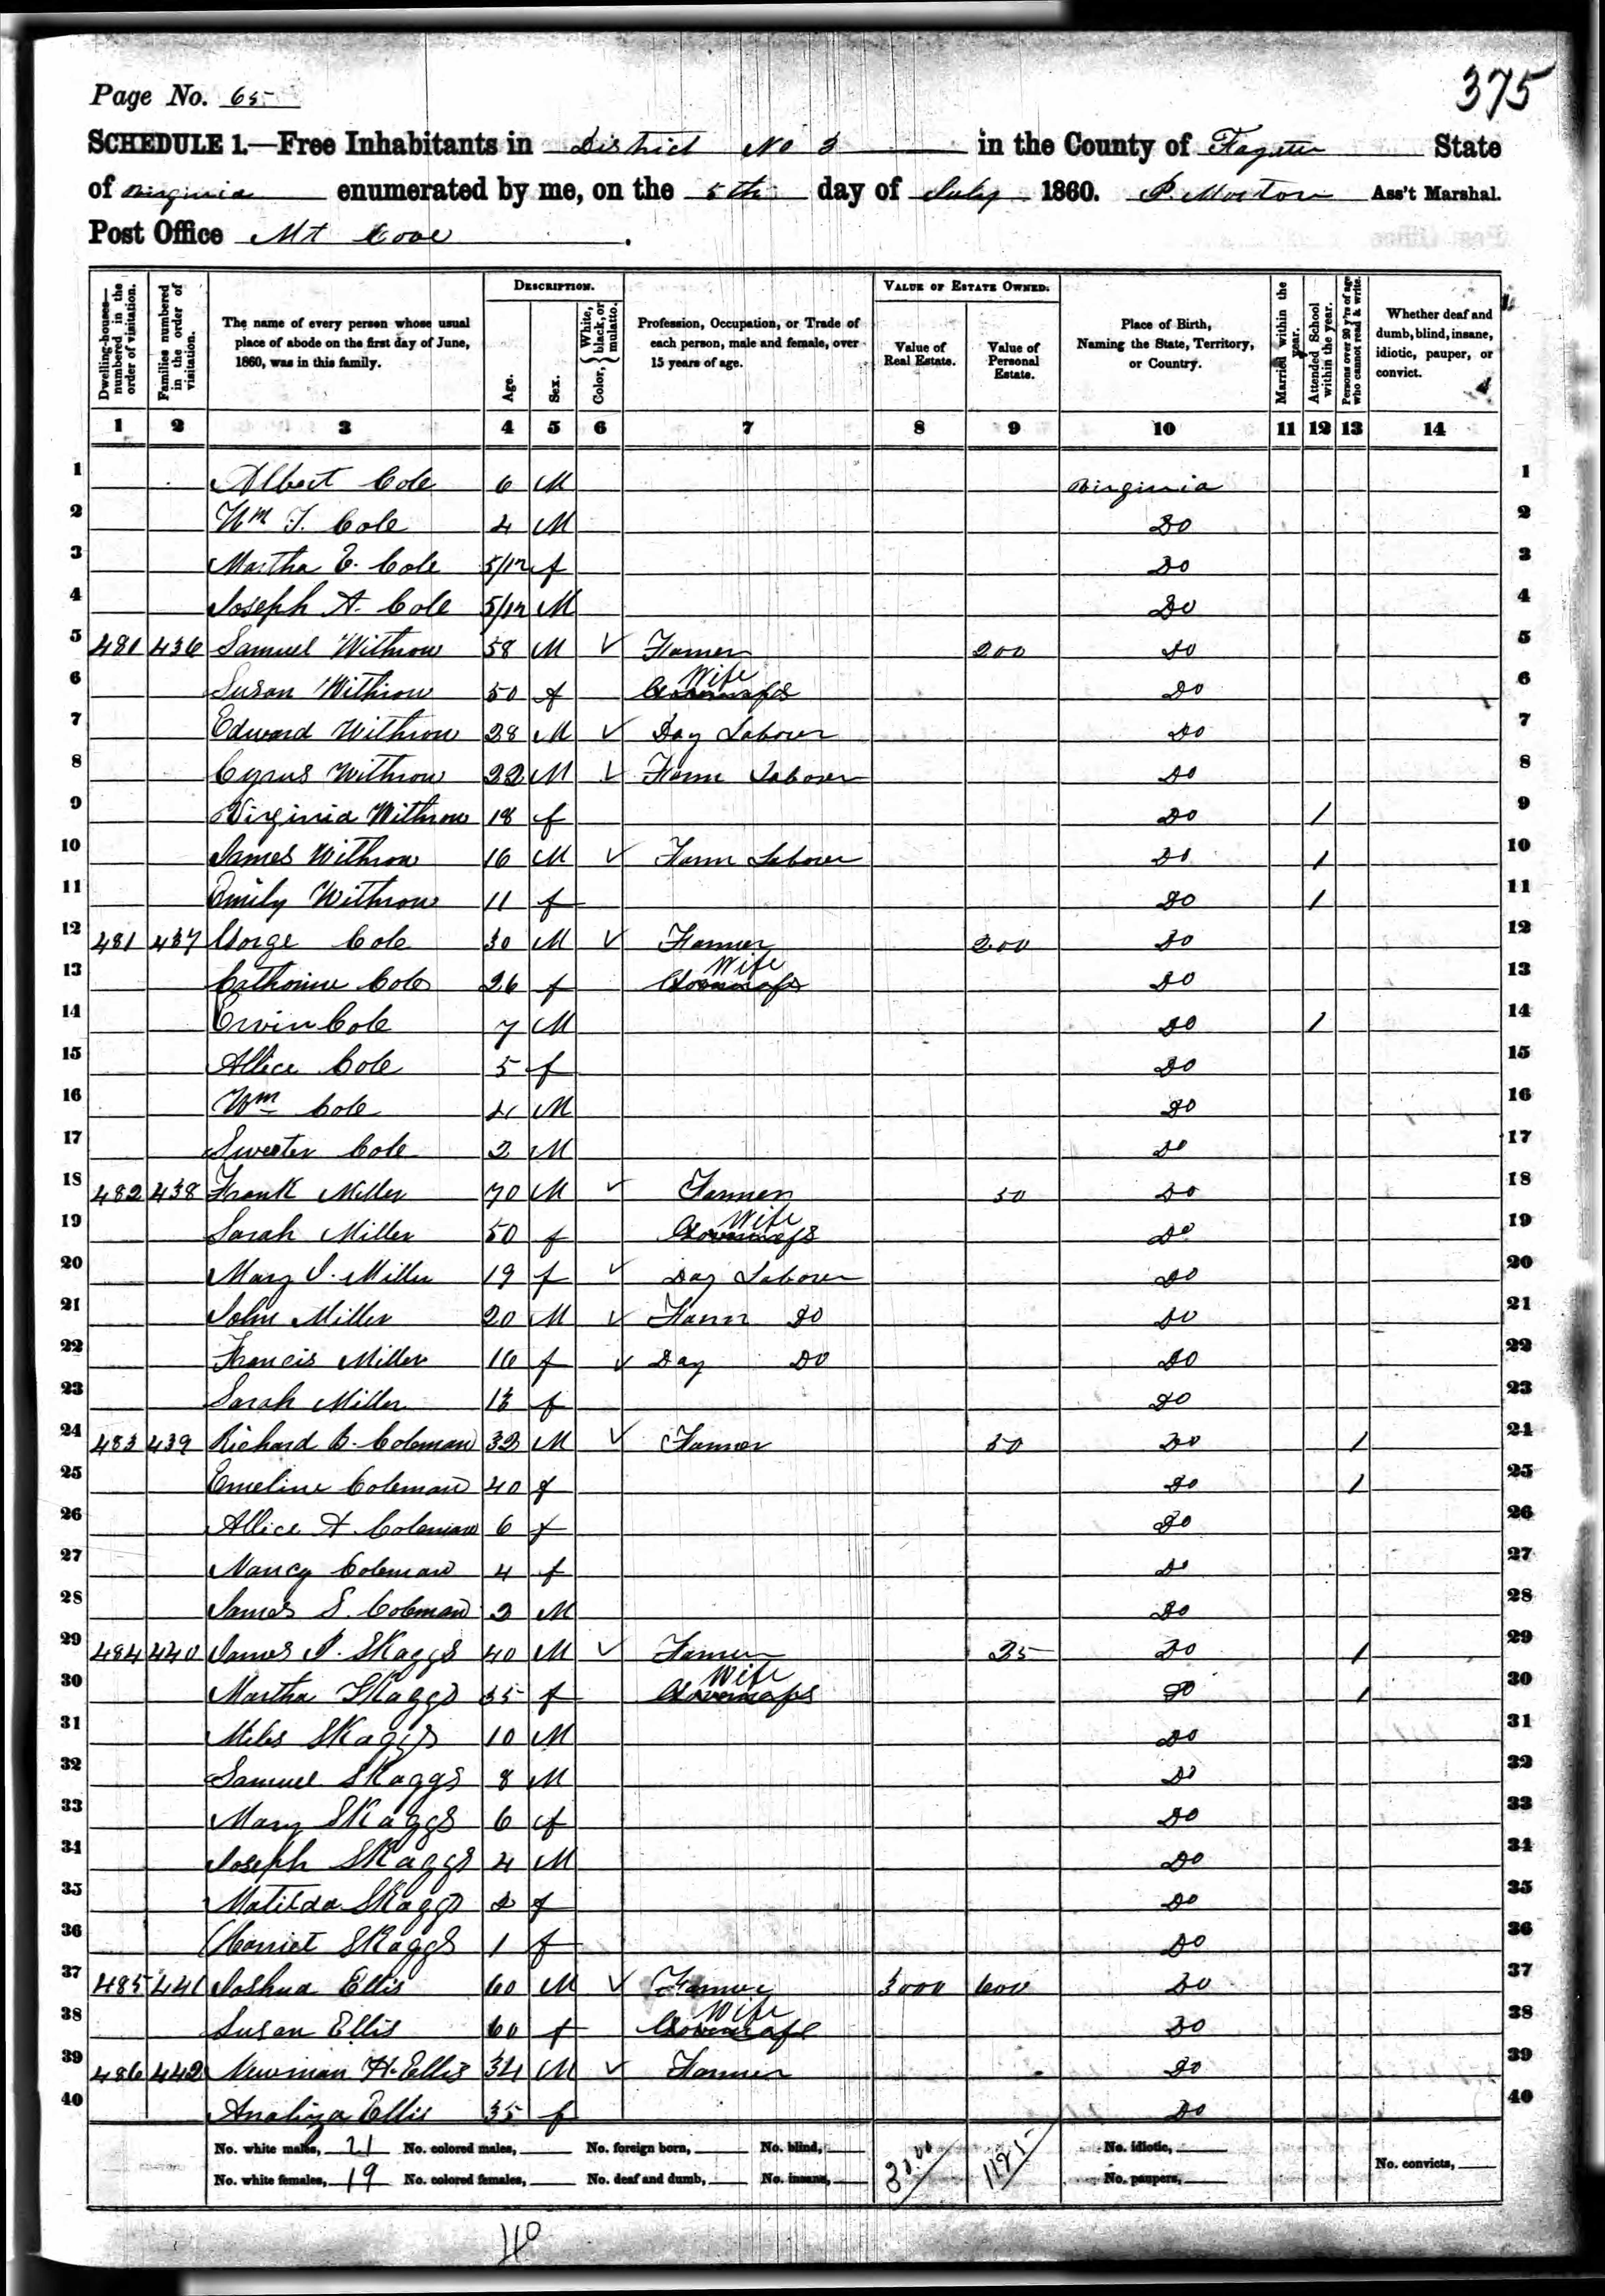 375
Page No. 65
SCHEDULE 1.—Free Inhabitants in District No 3 in the County of Fayette State
of Virginia enumerated by me, on the 5th day of July 1860. P. Morton Ass't Marshal.
Post Office Mt Cove.
Dwelling-houses—numbered in the order of visitation. Families numbered in the order of visitation. The name of every person whose usual place of abode on the first day of June, 1860, was in this family. Description. Age. Sex. Color, { White, black, or mulatto. Profession, Occupation, or Trade of each person, male and female, over 15 years of age. Value of Estate Owned. Value of Real Estate. Value of Personal Estate. Place of Birth, Naming the State, Territory, or Country. Married within the year. Attended School within the year. Persons over 20 y'rs of age who cannot read & write. Whether deaf and dumb, blind, insane, idiotic, pauper, or convict.
1 2 3 4 5 6 7 8 9 10 11 12 13 14
1 Albert Cole 6 M Virginia 1
2 Wm T. Cole 4 M Do 2
3 Martha E. Cole 5/12 f Do 3
4 Joseph A. Cole 5/12 M Do 4
5 481 436 Samuel Withrow 58 M ✓ Farmer 200 Do 5
6 Susan Withrow 50 f Wife Do 6
7 Edward Withrow 28 M ✓ Day Laborer Do 7
8 Cyrus Withrow 22 M ✓ Farm Laborer Do 8
9 Virginia Withrow 18 f Do / 9
10 James Withrow 16 M ✓ Farm Laborer Do / 10
11 Emily Withrow 11 f Do / 11
12 481 437 George Cole 30 M ✓ Farmer 200 Do 12
13 Catharine Cole 26 f Wife Do 13
14 Ervin Cole 7 M Do / 14
15 Allice Cole 5 f Do 15
16 Wm Cole 4 M Do 16
17 Sweeter Cole 2 M Do 17
18 482 438 Frank Miller 70 M ✓ Farmer 50 Do 18
19 Sarah Miller 50 f Wife Do 19
20 Mary J. Miller 19 f ✓ Day Laborer Do 20
21 John Miller 20 M ✓ Farm Do Do 21
22 Francis Miller 16 f ✓ Day Do Do 22
23 Sarah Miller 13 f Do 23
24 483 439 Richard C. Coleman 32 M ✓ Farmer 50 Do / 24
25 Emeline Coleman 40 f Do / 25
26 Allice A Coleman 6 f Do 26
27 Nancy Coleman 4 f Do 27
28 James S. Coleman 2 M Do 28
29 484 440 James P. Skaggs 40 M ✓ Farmer 25 Do / 29
30 Martha Skaggs 35 f Wife Do / 30
31 Miles Skaggs 10 M Do 31
32 Samuel Skaggs 8 M Do 32
33 Mary Skaggs 6 f Do 33
34 Joseph Skaggs 4 M Do 34
35 Matilda Skaggs 2 f Do 35
36 Harriet Skaggs 1 f Do 36
37 485 441 Joshua Ellis 60 M ✓ Farmer 3000 600 Do 37
38 Susan Ellis 60 f Wife Do 38
39 486 442 Newman H. Ellis 34 M ✓ Farmer Do 39
40 Analiza Ellis 35 f Do 40
No. white males, 21 No. colored males, No. foreign born, No. blind, 3000 1125 No. idiotic,
No. white females, 19 No. colored females, No. deaf and dumb, No. insane, No. paupers, No. convicts,
40